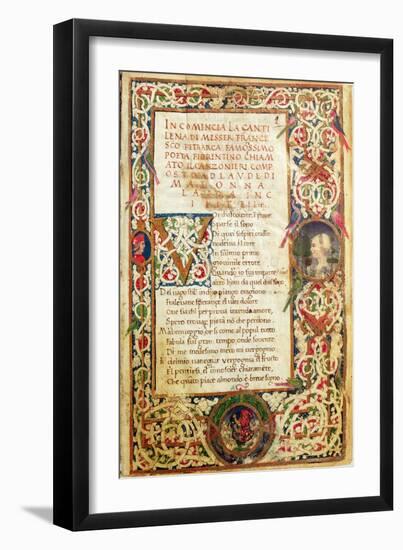 INCOMINCIA LA CANTI
LENA DI MESSER FRANCE
SCO PETRARCA FAMOSSIMO
POETA FIORENTINO CHIAM
ATO IL CANZONIERI COMP
OSTO AD LAUDE DI
MADONNA
LAURA INC
V
sparse il sono
Di quei sospiri ondio
nudriva il core
In sulmio primo
giovenile errore
Quando io
Del vago stil inchio piango et
Fraleuane speranze el uan dolore
Oue sia chi per proua intenda amore
Spero trouar pietà non che perdono
Ma ben ueggio or si come al popul tutto
Fabula fui gran tempo onde souente
Di me medesimo meco mi uergogno
El mio uaneggiar uergogna el fructo
El pentirsi el conoscer chiaramente
Che quanto piace almondo è breue sogno